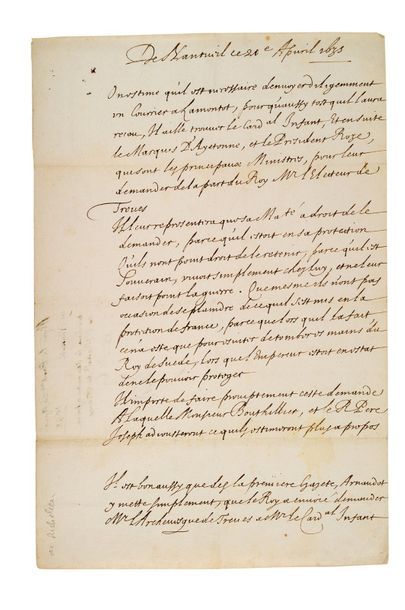 De Nantuil ce 21e Apvril 1635
On estime qu'il est necessaire d'envoyer diligemment
un Courrier a Lamontot, pour quaussy tost quil laura
receu, Il aille trouver le Card al Infant, Et en suite
le Marques D'Aytonne, et le President Roze,
qui sont les principaux Ministres, pour leur
demander de la part du Roy Mr. l'Electeur de
Treves
Il leur representera que sa Ma.té a droit de le
demander, parce qu'il estoit en sa protection
Qu'ils n'ont point droit de le retenir, parce qu'il est
Souverain, vivoit simplement chez luy, et ne leur
faisoit point la guerre. Que mesme ils n'ont pas
occasion de se plaindre de ce quil s'est mis en la
protection de france, parce que lors quil la fait
ce n'a esté que pour s'oster des mains du
Roy de Suede, lors que l'Empereur estoit en estat
de ne le pouvoir proteger
Il importe de faire promptement ceste demande
A laquelle Monsieur Bouthillier, et le R. Pere
Joseph adjousteront ce quils estimeront plus a propos
Il est bon aussy que des la premiere Gazete, Renaudot
y mette simplement, que le Roy a envoié demander
Mr. l'Archevesque de Treves a Mr. le Card. al Infant